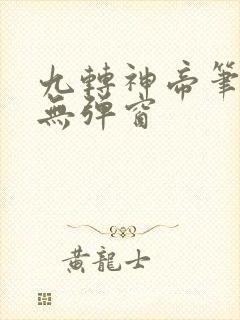 九轉神帝筆
無彈窗
黃龍士